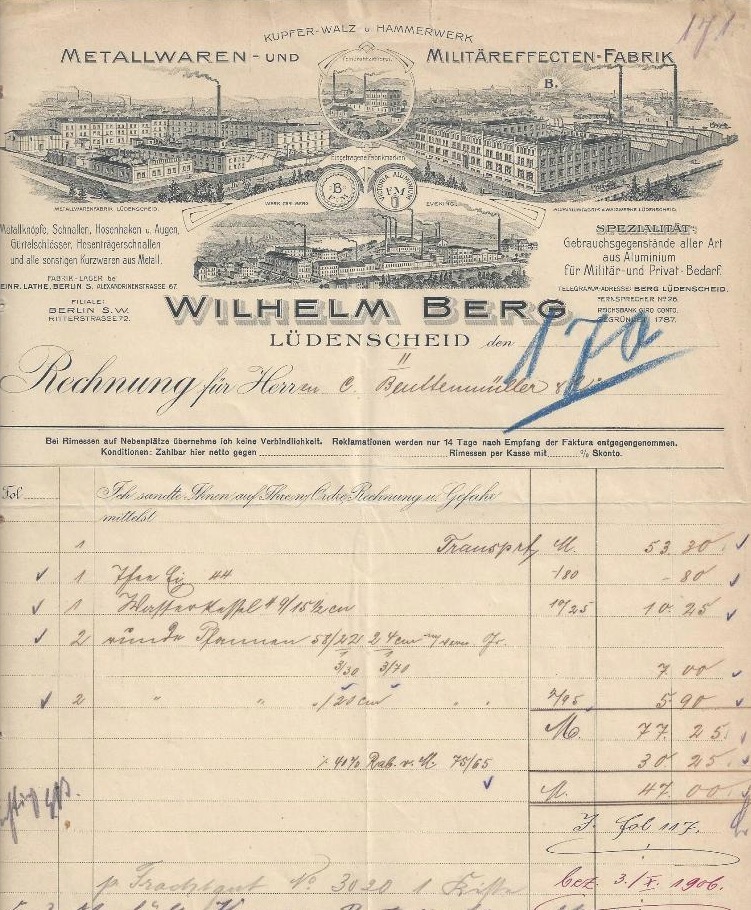 171
KUPFER-WALZ u HAMMERWERK
METALLWAREN- UND MILITÄREFFECTEN-FABRIK
B.
Eingetragene Fabrikmarken
B
FM
METALLWARENFABRIK LÜDENSCHEID.
WERK EVEKING.
Metallknöpfe, Schnallen, Hosenhaken u. Augen,
Gürtelschlösser, Hosenträgerschnallen
und alle sonstigen Kurzwaren aus Metall.
FABRIK-LAGER bei
HEINR. LATHE, BERLIN S. ALEXANDRINENSTRASSE 67.
FILIALE:
BERLIN S.W.
RITTERSTRASSE 72.
SPEZIALITÄT:
Gebrauchsgegenstände aller Art
aus Aluminium
für Militär- und Privat-Bedarf.
TELEGRAMM-ADRESSE: BERG LÜDENSCHEID.
FERNSPRECHER No 26.
REICHSBANK GIRO CONTO.
GEGRÜNDET 1787.
WILHELM BERG
LÜDENSCHEID den
170
II
Rechnung für Herren C. Beuttenmüller &
Bei Rimessen auf Nebenplätze übernehme ich keine Verbindlichkeit. Reklamationen werden nur 14 Tage nach Empfang der Faktura entgegengenommen.
Konditionen: Zahlbar hier netto gegen Rimessen per Kasse mit % Skonto.
Fol
Ich sandte Ihnen auf Ihre w. Ordre, Rechnung u. Gefahr
mittelst
1 Transport M. 53 30
1 Thee Ei 44 -/80 - 80
1 Wasserkessel 9/15 1/2 cm 10/25 10 25
2 runde Pfannen 58/22 24 cm
3/30 3/70 7 00
2 " " /20 cm " " 2/95 5 90
M. 77 25
% 40% Rab. v. M. 75/65 30 25
M. 47 00
J. fol 117.
p. Frachtgut No 3020 1 Kiste bez. 3./X. 1906.